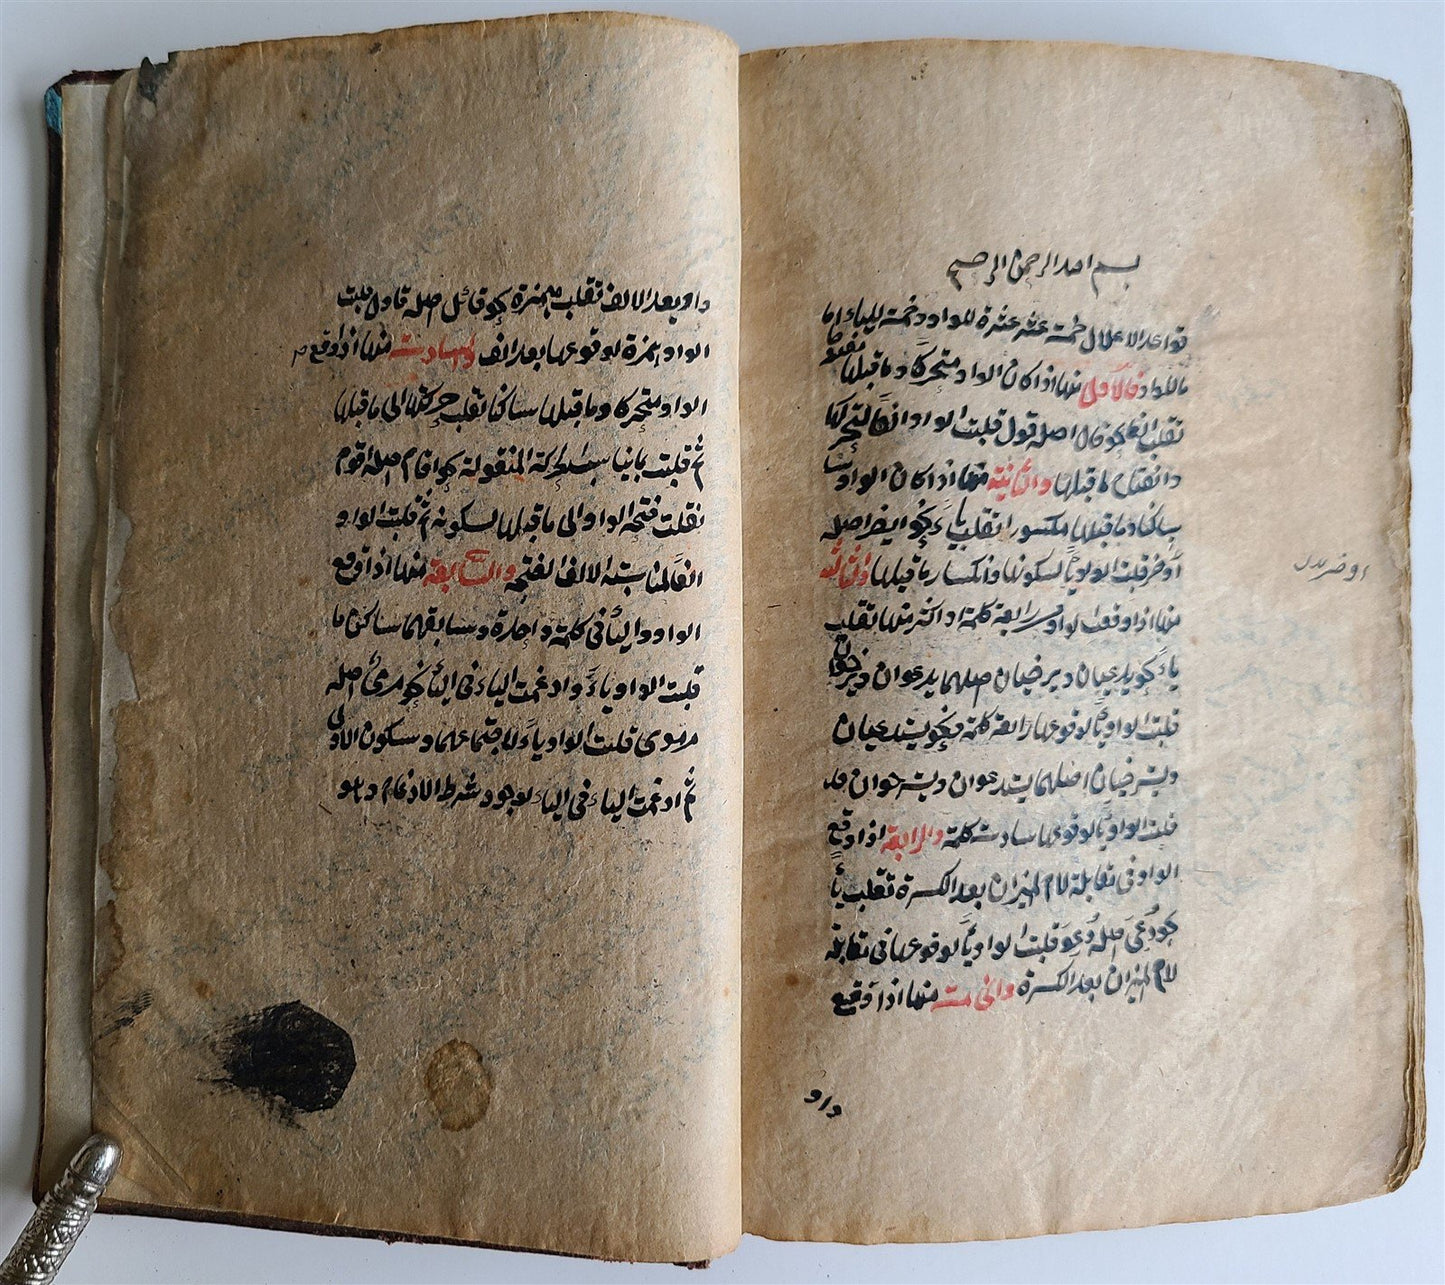 بسم الله الرحمن الرحيم
قواعد الاعلال خمسة عشر عشرة للواو وخمسة للياء اما
ماللواو فالاولى منها اذا كان الواو متحركا وما قبلها مفتوحا
تقلب الفا نحو قال اصله قول قلبت الواو الفا لتحركها
وانفتاح ما قبلها والثانية منها اذا كان الواو
ساكنا وما قبلها مكسورا تقلب ياء نحو ايضر اصله
اوضر قلبت الواو ياء لسكونها وانكسار ما قبلها والثالثة
منها اذا وقعت الواو رابعة كلمة او اكثر منها تقلب
ياء نحو يدعيان ويرضيان اصلهما يدعوان ويرضوان
قلبت الواو ياء لوقوعها رابعة كلمة ونحو يستدعيان
ويسترضيان اصلهما يستدعوان ويسترضوان قد
قلبت الواو ياء لوقوعها سادسة كلمة والرابعة اذا وقع
الواو فى مقابلة لام الميزان بعد الكسرة تقلب ياء
نحو دعى اصله دعو قلبت الواو ياء لوقوعها فى مقابلة
لام الميزان بعد الكسرة والخامسة منها اذا وقع
واو
واو بعد الالف تقلب همزة نحو قائل اصله قاول قلبت
الواو همزة لوقوعها بعد الف والسادسة منها اذا وقع
الواو متحركا وما قبلها ساكنا تقلب حركتها الى ما قبلها
ثم قلبت بما يناسب الحركة المنقولة نحو اقام اصله اقوم
نقلت فتحة الواو الى ما قبلها لسكونه ثم قلبت الواو
الفا لمناسبة الالف الفتحة والسابعة منها اذا وقع
الواو والياء فى كلمة واحدة وسابقهما ساكن ما
قلبت الواو ياء وادغمت الياء فى الياء نحو مرمى اصله
مرموى قلبت الواو ياء لاجتماعهما وسكون الاولى
ثم ادغمت الياء فى الياء لوجود شرط الادغام وهو